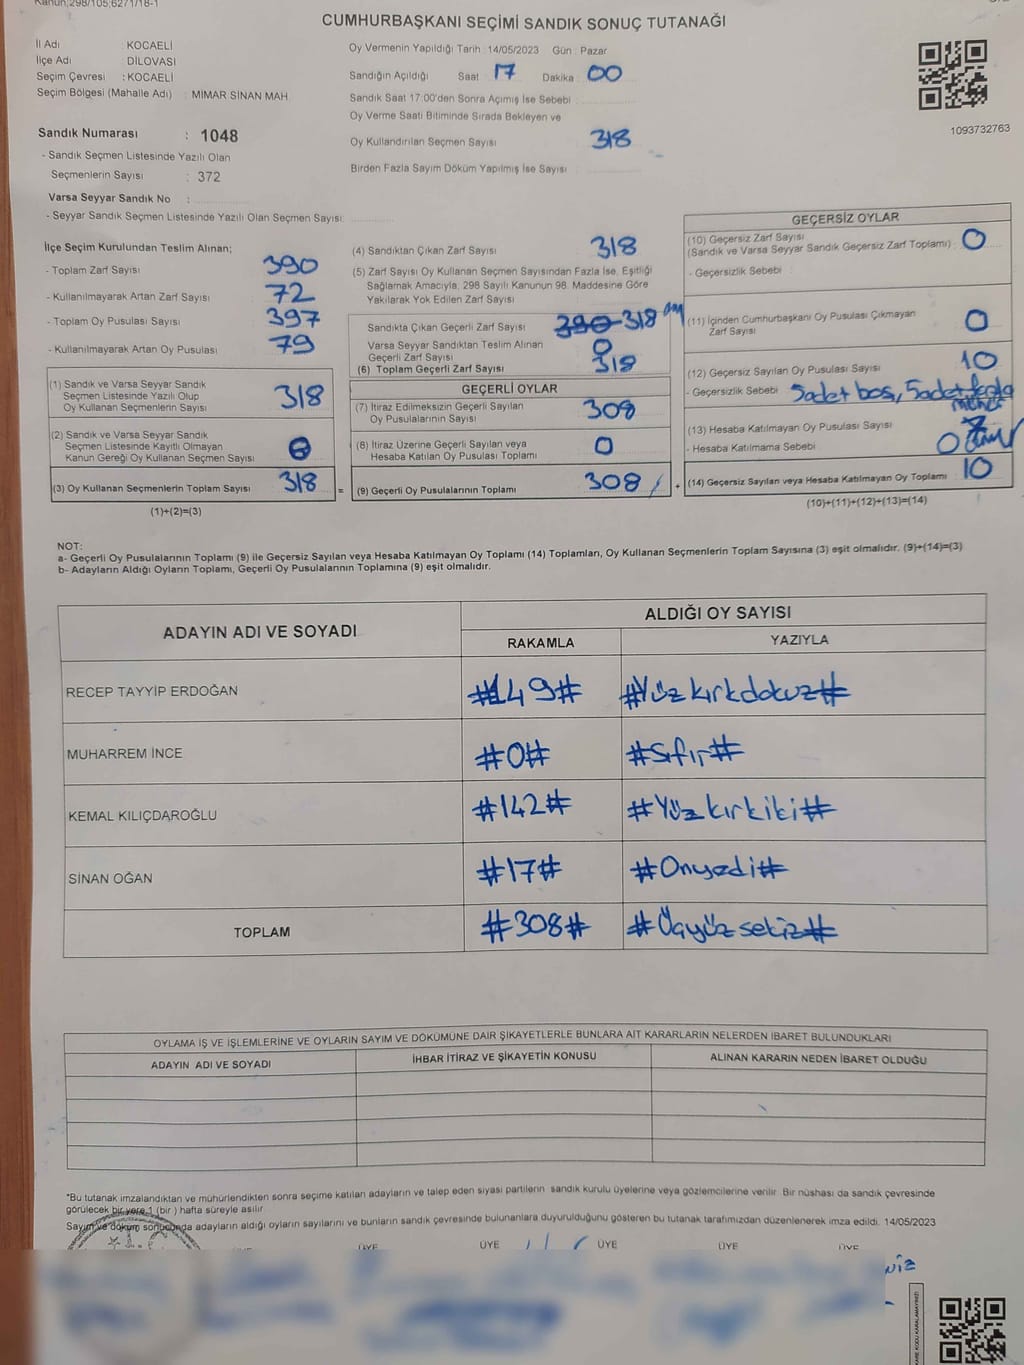 Kanun;298/105;6271/18-1
CUMHURBAŞKANI SEÇİMİ SANDIK SONUÇ TUTANAĞI
İl Adı : KOCAELİ
İlçe Adı DİLOVASI
Seçim Çevresi : KOCAELİ
Seçim Bölgesi (Mahalle Adı) : MIMAR SİNAN MAH.
Oy Vermenin Yapıldığı Tarih : 14/05/2023 Gün : Pazar
Sandığın Açıldığı Saat 17 Dakika 00
Sandık Saat 17:00'den Sonra Açımış İse Sebebi :
Oy Verme Saati Bitiminde Sırada Bekleyen ve
Oy Kullandırılan Seçmen Sayısı 318
Birden Fazla Sayım Döküm Yapılmış İse Sayısı :
1093732763
Sandık Numarası : 1048
- Sandık Seçmen Listesinde Yazılı Olan
Seçmenlerin Sayısı : 372
Varsa Seyyar Sandık No :
- Seyyar Sandık Seçmen Listesinde Yazılı Olan Seçmen Sayısı:
İlçe Seçim Kurulundan Teslim Alınan;
- Toplam Zarf Sayısı 390
- Kullanılmayarak Artan Zarf Sayısı 72
- Toplam Oy Pusulası Sayısı 397
- Kullanılmayarak Artan Oy Pusulası 79
(1) Sandık ve Varsa Seyyar Sandık
Seçmen Listesinde Yazılı Olup
Oy Kullanan Seçmenlerin Sayısı 318
(2) Sandık ve Varsa Seyyar Sandık
Seçmen Listesinde Kayıtlı Olmayan
Kanun Gereği Oy Kullanan Seçmen Sayısı 0
(3) Oy Kullanan Seçmenlerin Toplam Sayısı 318
(1)+(2)=(3)
(4) Sandıktan Çıkan Zarf Sayısı 318
(5) Zarf Sayısı Oy Kullanan Seçmen Sayısından Fazla İse, Eşitliği
Sağlamak Amacıyla, 298 Sayılı Kanunun 98. Maddesine Göre
Yakılarak Yok Edilen Zarf Sayısı
Sandıkta Çıkan Geçerli Zarf Sayısı 390 318
Varsa Seyyar Sandıktan Teslim Alınan
Geçerli Zarf Sayısı 0
(6) Toplam Geçerli Zarf Sayısı 318
GEÇERLİ OYLAR
(7) İtiraz Edilmeksizin Geçerli Sayılan
Oy Pusulalarının Sayısı 308
(8) İtiraz Üzerine Geçerli Sayılan veya
Hesaba Katılan Oy Pusulası Toplamı 0
= (9) Geçerli Oy Pusulalarının Toplamı 308
GEÇERSİZ OYLAR
(10) Geçersiz Zarf Sayısı
(Sandık ve Varsa Seyyar Sandık Geçersiz Zarf Toplamı) : 0
- Geçersizlik Sebebi :
(11) İçinden Cumhurbaşkanı Oy Pusulası Çıkmayan
Zarf Sayısı 0
(12) Geçersiz Sayılan Oy Pusulası Sayısı 10
- Geçersizlik Sebebi 5adet boş, 5adet fazla
mühür
(13) Hesaba Katılmayan Oy Pusulası Sayısı
- Hesaba Katılmama Sebebi : 0
+ (14) Geçersiz Sayılan veya Hesaba Katılmayan Oy Toplamı 10
(10)+(11)+(12)+(13)=(14)
NOT:
a- Geçerli Oy Pusulalarının Toplamı (9) ile Geçersiz Sayılan veya Hesaba Katılmayan Oy Toplamı (14) Toplamları, Oy Kullanan Seçmenlerin Toplam Sayısına (3) eşit olmalıdır. (9)+(14)=(3)
b- Adayların Aldığı Oyların Toplamı, Geçerli Oy Pusulalarının Toplamına (9) eşit olmalıdır.
ADAYIN ADI VE SOYADI ALDIĞI OY SAYISI
RAKAMLA YAZIYLA
RECEP TAYYİP ERDOĞAN #149# #Yüzkırkdokuz#
MUHARREM İNCE #0# #Sıfır#
KEMAL KILIÇDAROĞLU #142# #Yüzkırkiki#
SİNAN OĞAN #17# #Onyedi#
TOPLAM #308# #Üçyüzsekiz#
OYLAMA İŞ VE İŞLEMLERİNE VE OYLARIN SAYIM VE DÖKÜMÜNE DAİR ŞİKAYETLERLE BUNLARA AİT KARARLARIN NELERDEN İBARET BULUNDUKLARI
ADAYIN ADI VE SOYADI İHBAR İTİRAZ VE ŞİKAYETİN KONUSU ALINAN KARARIN NEDEN İBARET OLDUĞU
*Bu tutanak imzalandıktan ve mühürlendikten sonra seçime katılan adayların ve talep eden siyasi partilerin sandık kurulu üyelerine veya gözlemcilerine verilir. Bir nüshası da sandık çevresinde
görülecek bir yere 1 (bir) hafta süreyle asılır.
Sayım ve döküm sonucunda adayların aldığı oyların sayılarını ve bunların sandık çevresinde bulunanlara duyurulduğunu gösteren bu tutanak tarafımızdan düzenlenerek imza edildi. 14/05/2023
ÜYE ÜYE ÜYE ÜYE ÜYE